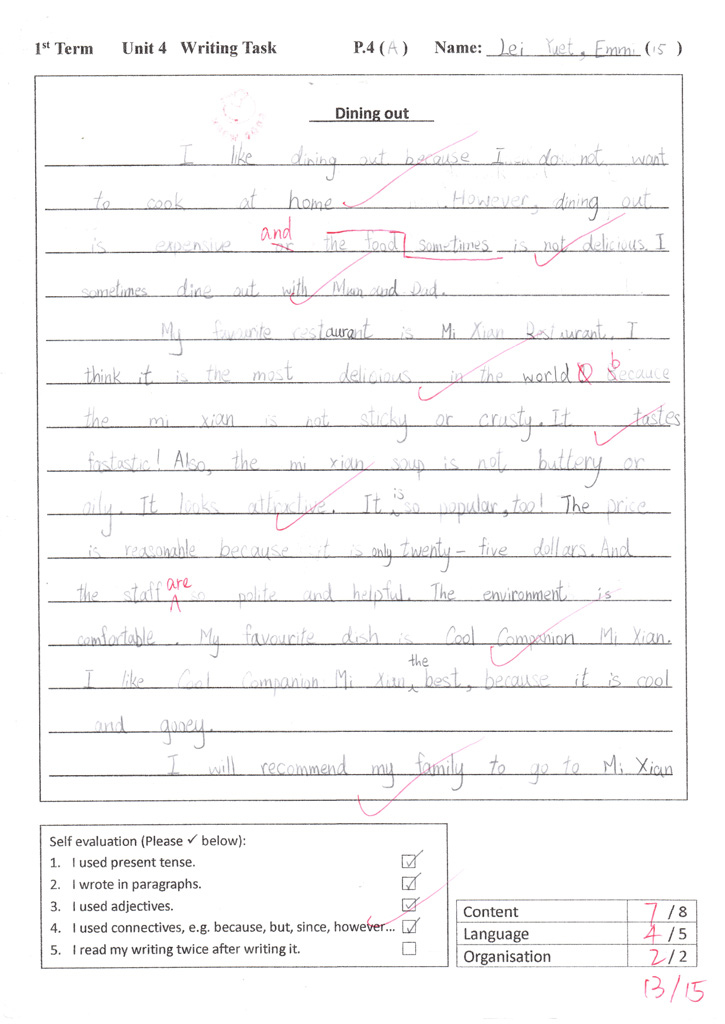 1st Term Unit 4 Writing Task P.4 (A) Name: Lei Yuet, Emmi (15)
Dining out
I like dining out because I do not want
to cook at home However, dining out
and
is expensive or the food sometimes is not delicious. I
sometimes dine out with Mum and Dad.
My favourite restaurant is Mi Xian Restaurant. I
b
think it is the most delicious in the world Because
the mi xian is not sticky or crusty. It tastes
fastastic! Also, the mi xian soup is not buttery or
is
oily. It looks attractive. It so popular, too! The price
is reasonable because it is only twenty-five dollars. And
are
the staff so polite and helpful. The environment is
comfortable. My favourite dish is Cool Companion Mi Xian.
the
I like Cool Companion Mi Xian best, because it is cool
and gooey.
I will recommend my family to go to Mi Xian
Self evaluation (Please ✓ below):
1. I used present tense. ✓
2. I wrote in paragraphs. ✓
3. I used adjectives. ✓
4. I used connectives, e.g. because, but, since, however... ✓
5. I read my writing twice after writing it.
Content 7 /8
Language 4 /5
Organisation 2 /2
13/15